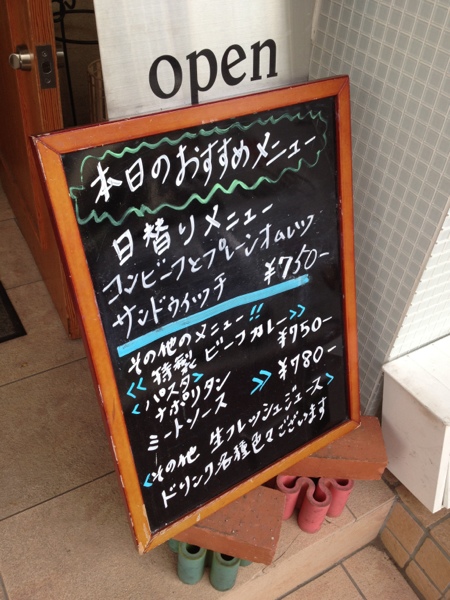 open
本日のおすすめメニュー
日替りメニュー
コンビーフとプレーンオムレツ
サンドウィッチ ¥750-
その他のメニュー!!
《特製 ビーフカレー》 ¥750-
〈パスタ〉
ナポリタン
ミートソース 》 ¥780-
〈その他 生フレッシュジュース〉
ドリンク各種色々ございます